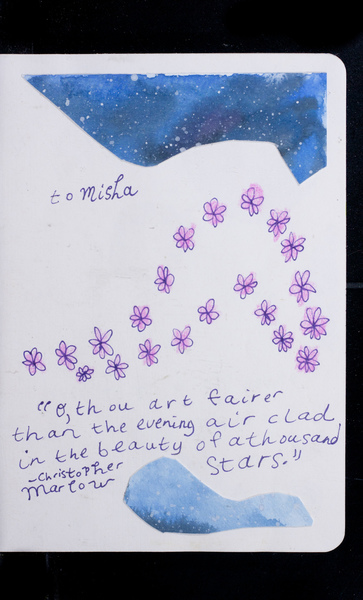 to Misha
"O, thou art fairer
than the evening air clad
in the beauty of a thousand
stars."
-Christopher
Marlow